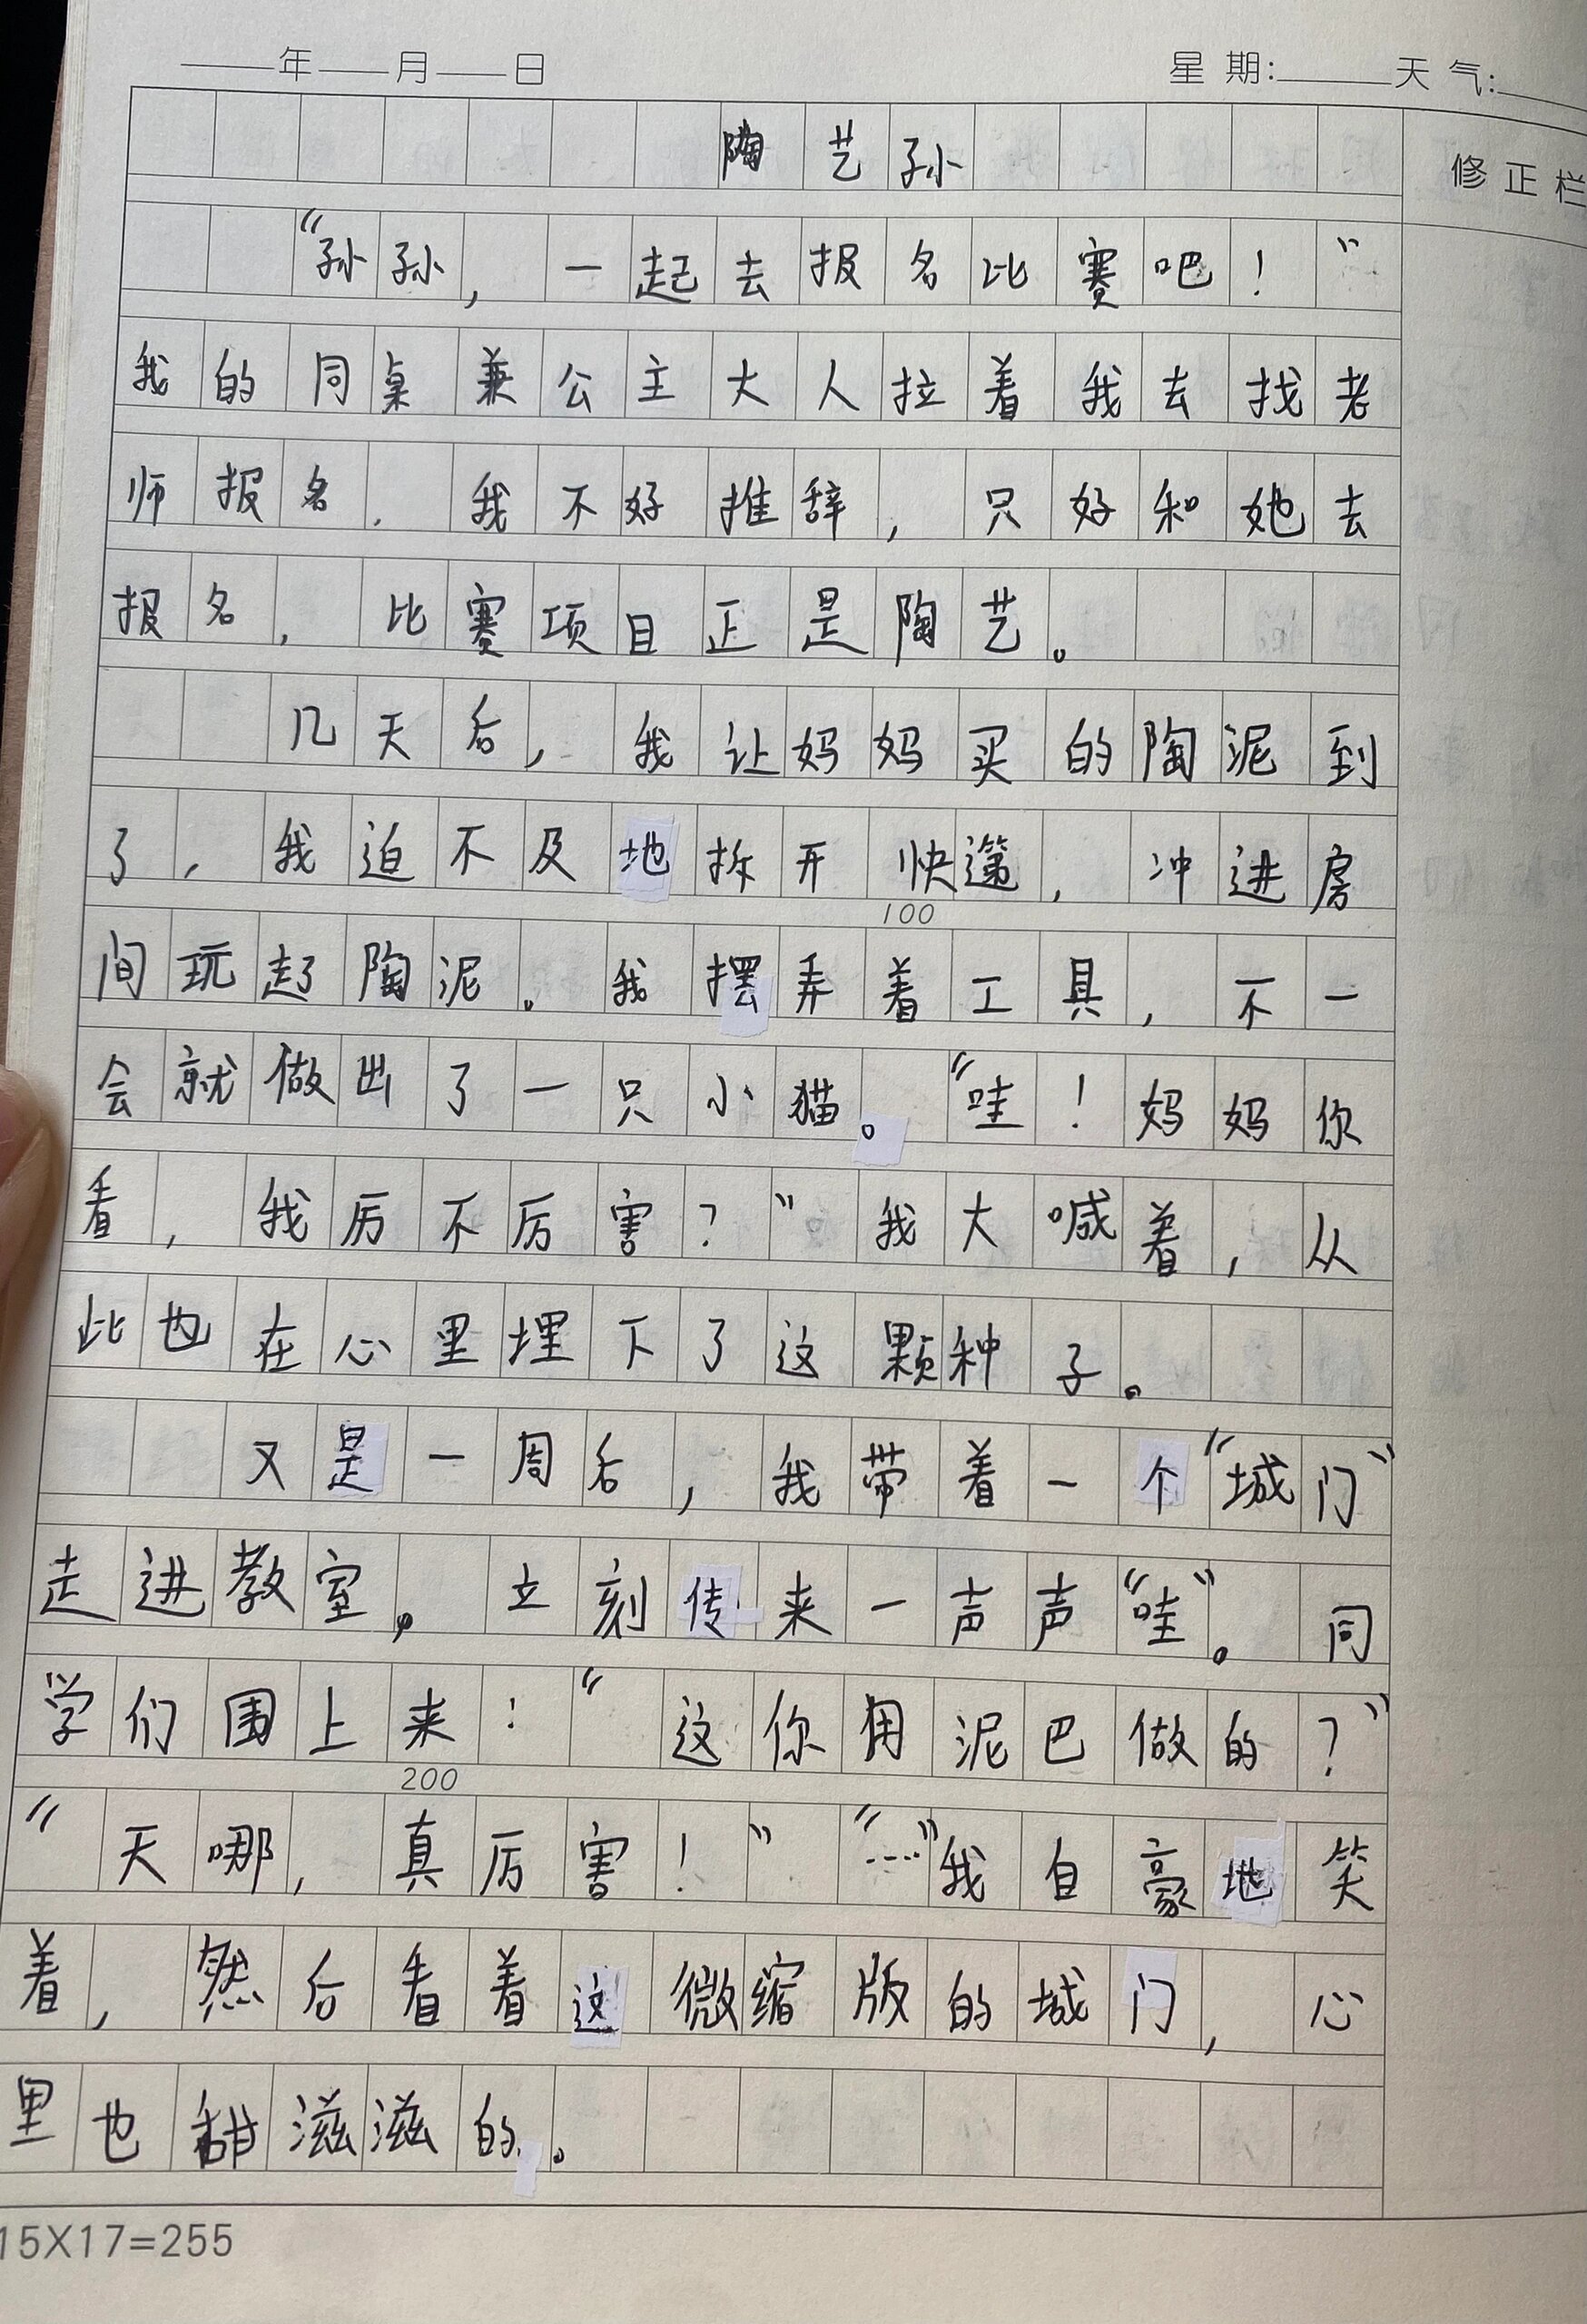 年 月 日 星期: 天气:
修正栏
陶艺孙
“孙孙，一起去报名比赛吧！”
我的同桌兼公主大人拉着我去找老
师报名，我不好推辞，只好和她去
报名，比赛项目正是陶艺。
几天后，我让妈妈买的陶泥到
了，我迫不及地拆开快递，冲进房
100
间玩起了陶泥。我摆弄着工具，不一
会就做出了一只小猫。“哇！妈妈你
看，我厉不厉害？”我大喊着，从
此也在心里埋下了这颗种子。
又是一周后，我带着一个“城门”
走进教室。立刻传来一声声“哇”。同
学们围上来：“这你用泥巴做的？”
200
“天哪，真厉害！”“……”我自豪地笑
着，然后看着这微缩版的城门，心
里也甜滋滋的。
15X17=255